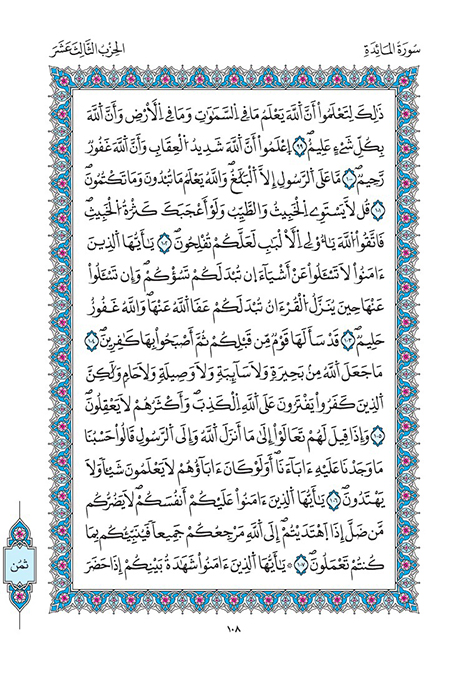 سُورَةُ المَائِدَةِ
الحِزْبُ الثَّالِثَ عَشَرَ
ذَٰلِكَ لِتَعْلَمُوٓاْ أَنَّ اَللَّهَ يَعْلَمُ مَا فِے اِلسَّمَٰوَٰتِ وَمَا فِے اِلْأَرْضِ وَأَنَّ اَللَّهَ
بِكُلِّ شَےْءٍ عَلِيمٌ ٩٩ اِعْلَمُوٓاْ أَنَّ اَللَّهَ شَدِيدُ اُلْعِقَابِ وَأَنَّ اَللَّهَ غَفُورٌ
رَّحِيمٌ ١٠٠ مَّا عَلَى اَلرَّسُولِ إِلَّا اَلْبَلَٰغُ وَاللَّهُ يَعْلَمُ مَا تُبْدُونَ وَمَا تَكْتُمُونَ
١٠١ قُل لَّا يَسْتَوِے اِلْخَبِيثُ وَالطَّيِّبُ وَلَوْ أَعْجَبَكَ كَثْرَةُ اُلْخَبِيثِ
فَاتَّقُواْ اُللَّهَ يَٰٓأُوْلِے اِلْأَلْبَٰبِ لَعَلَّكُمْ تُفْلِحُونَ ١٠٢ يَٰٓأَيُّهَا اَلذِينَ
ءَامَنُواْ لَا تَسْـَٔلُواْ عَنْ أَشْيَآءَ ان تُبْدَ لَكُمْ تَسُؤْكُمْ وَإِن تَسْـَٔلُواْ
عَنْهَا حِينَ يُنَزَّلُ اُلْقُرْءَانُ تُبْدَ لَكُمْ عَفَا اَللَّهُ عَنْهَا وَاللَّهُ غَفُورٌ
حَلِيمٌ ١٠٣ قَدْ سَأَلَهَا قَوْمٌ مِّن قَبْلِكُمْ ثُمَّ أَصْبَحُواْ بِهَا كَٰفِرِينَ ١٠٤
مَا جَعَلَ اَللَّهُ مِنۢ بَحِيرَةٍ وَلَا سَآئِبَةٍ وَلَا وَصِيلَةٍ وَلَا حَامٍ وَلَٰكِنَّ
اَلذِينَ كَفَرُواْ يَفْتَرُونَ عَلَى اَللَّهِ اِلْكَذِبَ وَأَكْثَرُهُمْ لَا يَعْقِلُونَ
١٠٥ وَإِذَا قِيلَ لَهُمْ تَعَالَوِاْ اِلَىٰ مَآ أَنزَلَ اَللَّهُ وَإِلَى اَلرَّسُولِ قَالُواْ حَسْبُنَا
مَا وَجَدْنَا عَلَيْهِ ءَابَآءَنَآ أَوَلَوْ كَانَ ءَابَآؤُهُمْ لَا يَعْلَمُونَ شَيْـٔاً وَلَا
يَهْتَدُونَ ١٠٦ يَٰٓأَيُّهَا اَلذِينَ ءَامَنُواْ عَلَيْكُمْ أَنفُسَكُمْ لَا يَضُرُّكُم
مَّن ضَلَّ إِذَا اَهْتَدَيْتُمْ إِلَى اَللَّهِ مَرْجِعُكُمْ جَمِيعاً فَيُنَبِّئُكُم بِمَا
كُنتُمْ تَعْمَلُونَ ١٠٧ يَٰٓأَيُّهَا اَلذِينَ ءَامَنُواْ شَهَٰدَةُ بَيْنِكُمْ إِذَا حَضَرَ
ثمن
١٠٨